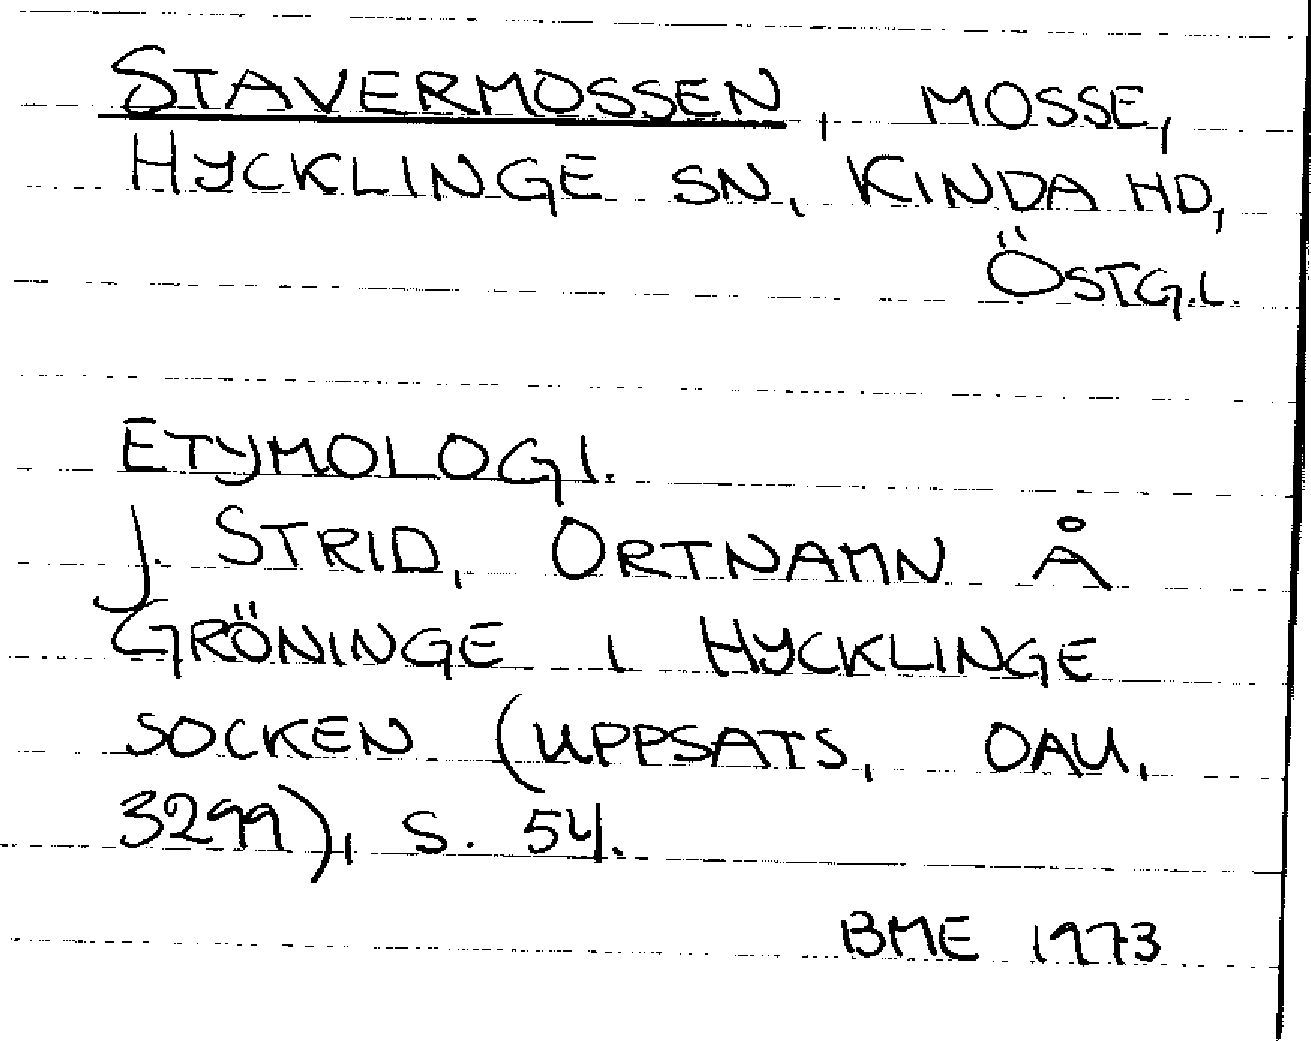 STAVERMOSSEN, MOSSE,
HYCKLINGE SN, KINDA HD,
ÖSTG.L.
ETYMOLOGI.
J. STRID, ORTNAMN Å
GRÖNINGE I HYCKLINGE
SOCKEN (UPPSATS, OAU,
3299), S. 54.
BME 1973